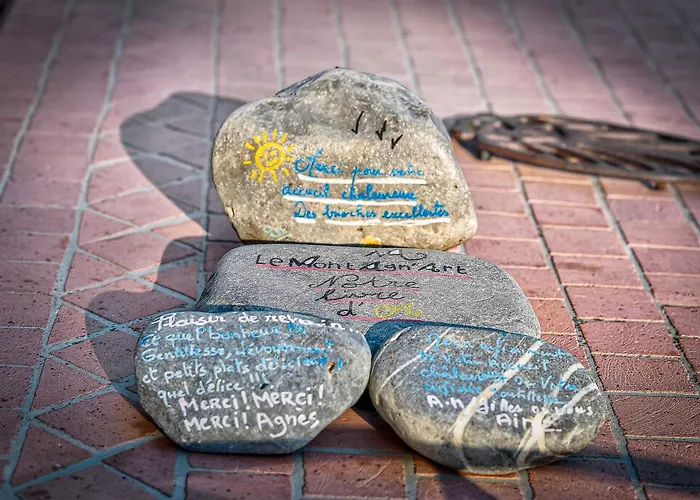 Merci pour votre
accueil chaleureux
Des brioches excellentes
LeMontAgn'Art
Notre
Livre
d'Or
Plaisir de revenir
Et quel bonheur !!!
Gentillesse, dévouement
et petits plats délicieux
quel délice !!!
MERCI! MERCI!
MERCI! Agnès
chaleureux de Vous
A.n gilles on vous
Aime